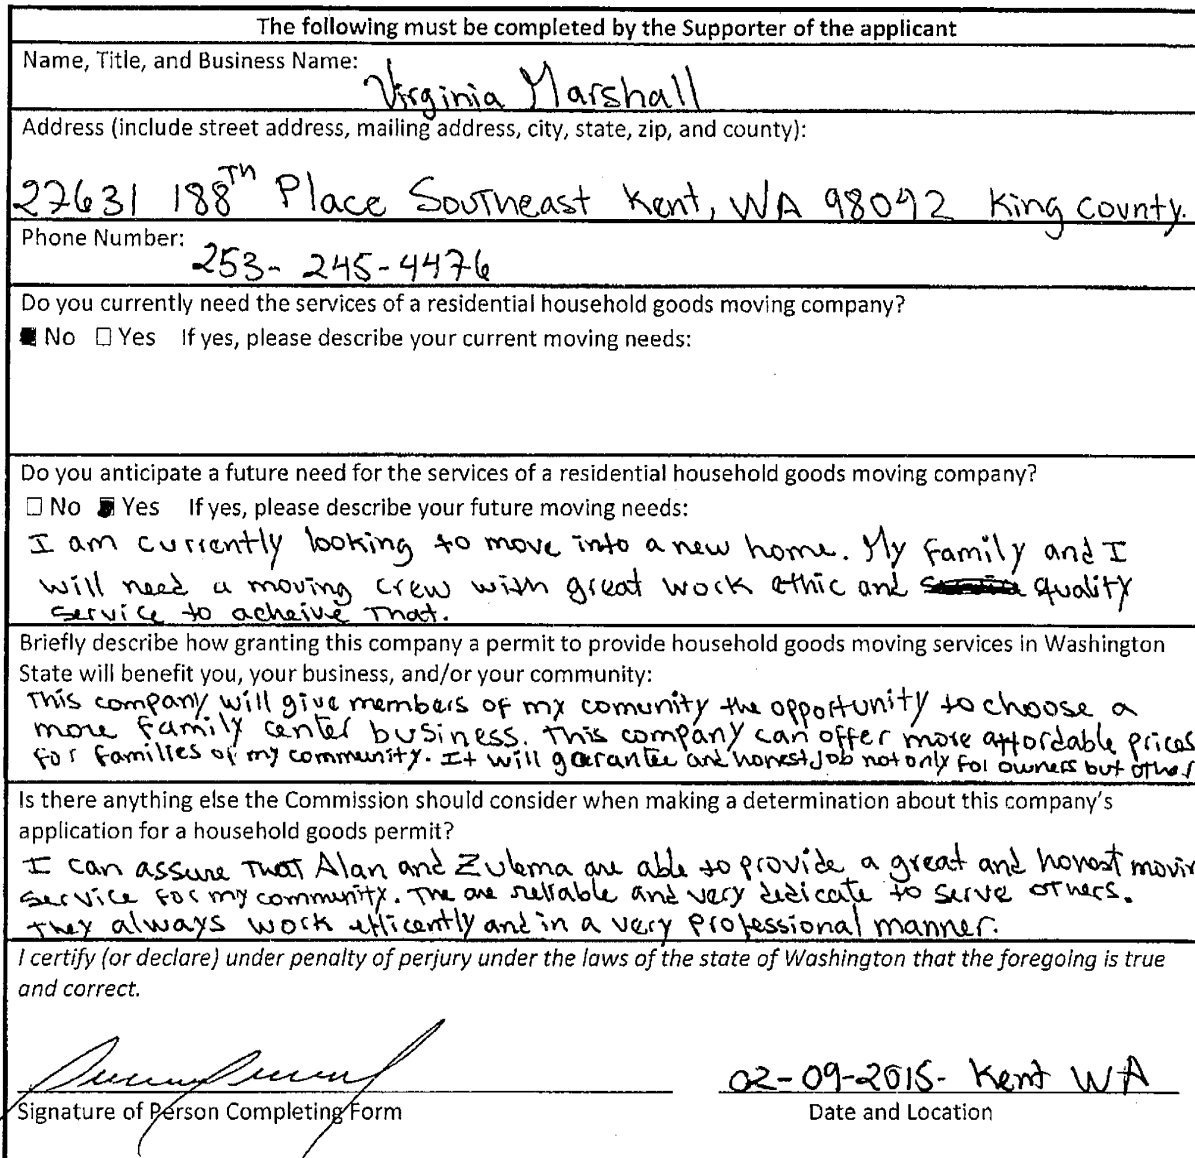 The following must be completed by the Supporter of the applicant
Name, Title, and Business Name:
Virginia Marshall
Address (include street address, mailing address, city, state, zip, and county):
27631 188th Place Southeast Kent, WA 98042 King county.
Phone Number:
253-245-4476
Do you currently need the services of a residential household goods moving company?
No Yes If yes, please describe your current moving needs:
Do you anticipate a future need for the services of a residential household goods moving company?
No Yes If yes, please describe your future moving needs:
I am currently looking to move into a new home. My family and I
will need a moving crew with great work ethic and quality
service to acheive that.
Briefly describe how granting this company a permit to provide household goods moving services in Washington
State will benefit you, your business, and/or your community:
This company will give members of my comunity the opportunity to choose a
more family center business. This company can offer more affordable prices
for families of my community. It will garantee and honest Job not only for owners but other
Is there anything else the Commission should consider when making a determination about this company's
application for a household goods permit?
I can assure that Alan and Zulema are able to provide a great and honest movin
service for my community. The are reliable and very dedicate to serve others.
they always work efficently and in a very professional manner.
I certify (or declare) under penalty of perjury under the laws of the state of Washington that the foregoing is true
and correct.
02-09-2015- Kent WA
Signature of Person Completing Form
Date and Location